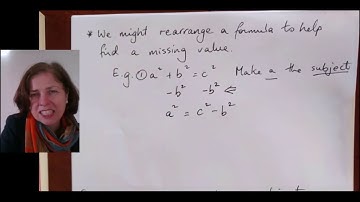 * We might rearrange a formula to help
find a missing value.
E.g. ① a² + b² = c² Make a the subject
-b² -b² ⇐
a² = c² - b²